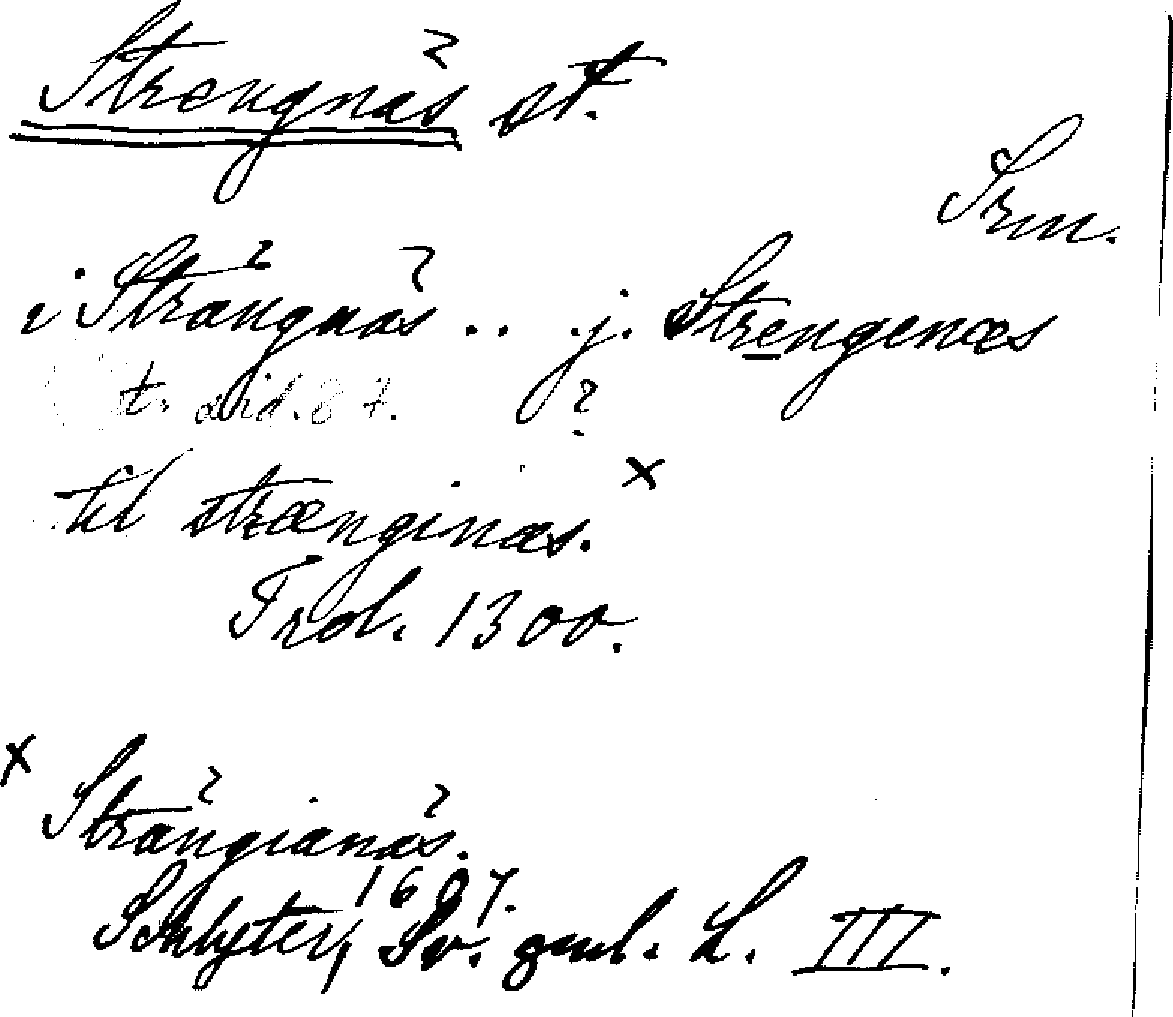 Strengnäs st.
Srm.
i Strängnäs .. j. Strengenæs
st. sid. 87. ?
til strænginæs. x
Frol. 1300.
x Strängianäs.
1607.
Schlyter, Sv. gml. L. III.